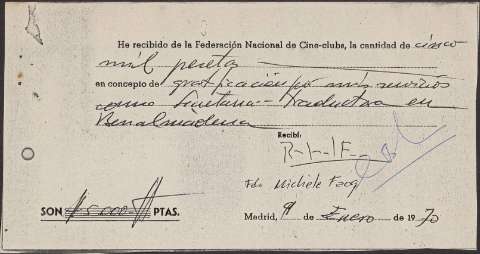 He recibido de la Federación Nacional de Cine-clubs, la cantidad de cinco
mil pesetas
en concepto de gratificación por mis servicios
como Secretaria - traductora en
Benalmadena
Recibí:
Fdo Michèle
SON 5000 PTAS.
Madrid, 9 de Enero de 1970